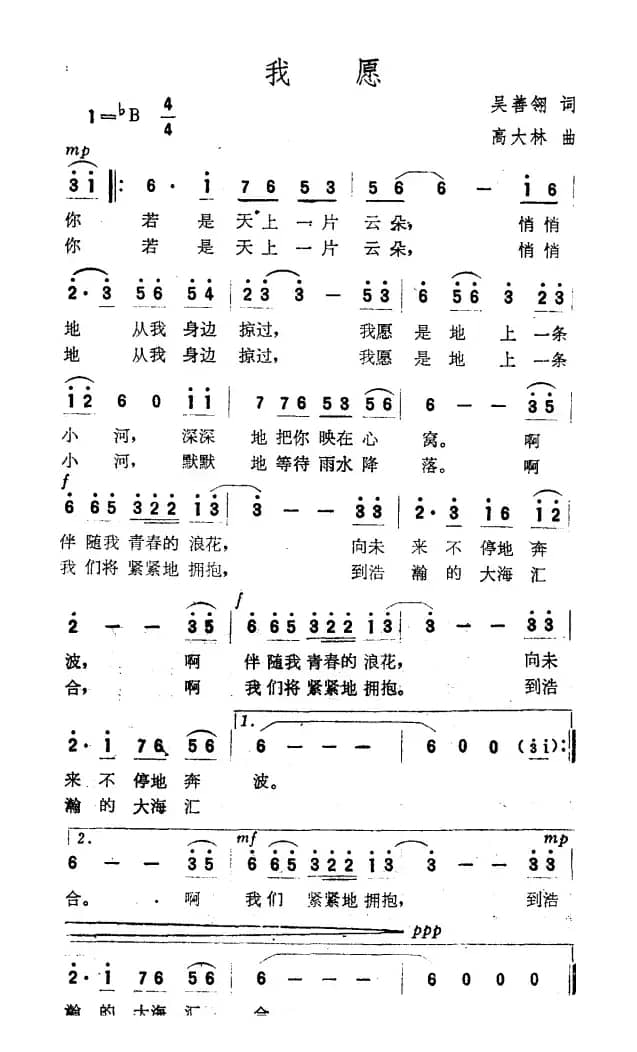 我 愿
1=♭B 4/4
吴善翎 词
高大林 曲
mp
3 1 ‖: 6· 1 7 6 5 3 | 5 6 6 – 1 6 |
你 若 是 天上 一片 云朵， 悄悄
你 若 是 天上 一片 云朵， 悄悄
2·3 5 6 5 4 | 2 3 3 – 5 3 | 6 5 6 3 2 3 |
地 从我 身边 掠过， 我愿 是 地 上 一条
地 从我 身边 掠过， 我愿 是 地 上 一条
1 2 6 0 1 1 | 7 7 6 5 3 5 6 | 6 – – 3 5 |
小 河， 深深 地 把你 映在 心 窝。 啊
小 河， 默默 地 等待 雨水 降 落。 啊
f
6 6 5 3 2 2 1 3 | 3 – – 3 3 | 2·3 1 6 1 2 |
伴 随我 青春的 浪花， 向未 来 不 停地 奔
我 们将 紧紧地 拥抱， 到浩 瀚 的 大海 汇
f
2 – – 3 5 | 6 6 5 3 2 2 1 3 | 3 – – 3 3 |
波， 啊 伴 随我 青春的 浪花， 向未
合， 啊 我 们将 紧紧地 拥抱。 到浩
1.
2·1 7 6 5 6 | 6 – – – | 6 0 0 (3 1) :‖
来 不 停地 奔 波。
瀚 的 大海 汇
2. mf mp
6 – – 3 5 | 6 6 5 3 2 2 1 3 | 3 – – 3 3 |
合。 啊 我 们 紧紧地 拥抱， 到浩
ppp
2·1 7 6 5 6 | 6 – – – | 6 0 0 0 ‖
瀚 的 大海 汇 合